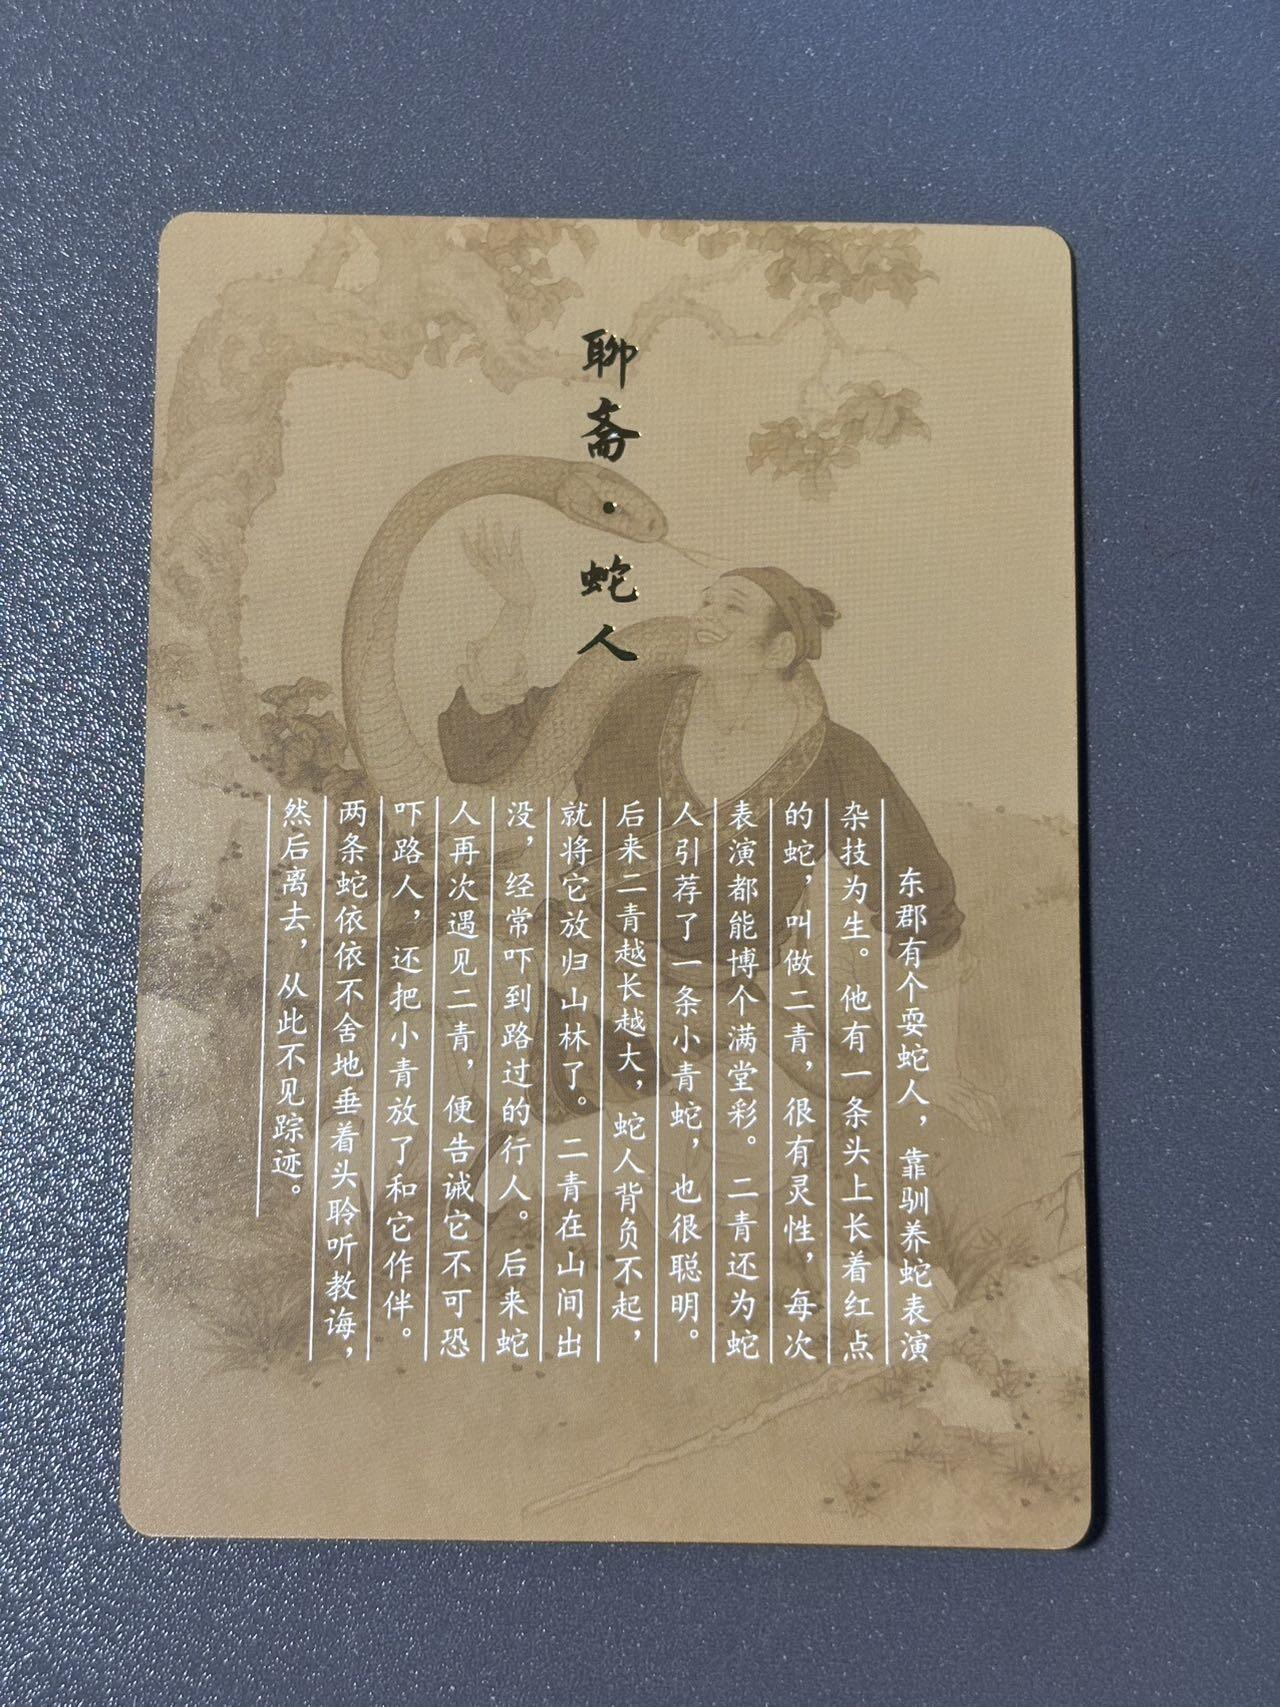 聊斋·蛇人
东郡有个耍蛇人，靠驯养蛇表演
杂技为生。他有一条头上长着红点
的蛇，叫做二青，很有灵性，每次
表演都能博个满堂彩。二青还为蛇
人引荐了一条小青蛇，也很聪明。
后来二青越长越大，蛇人背负不起，
就将它放归山林了。二青在山间出
没，经常吓到路过的行人。后来蛇
人再次遇见二青，便告诫它不可恐
吓路人，还把小青放了和它作伴。
两条蛇依依不舍地垂着头聆听教诲，
然后离去，从此不见踪迹。